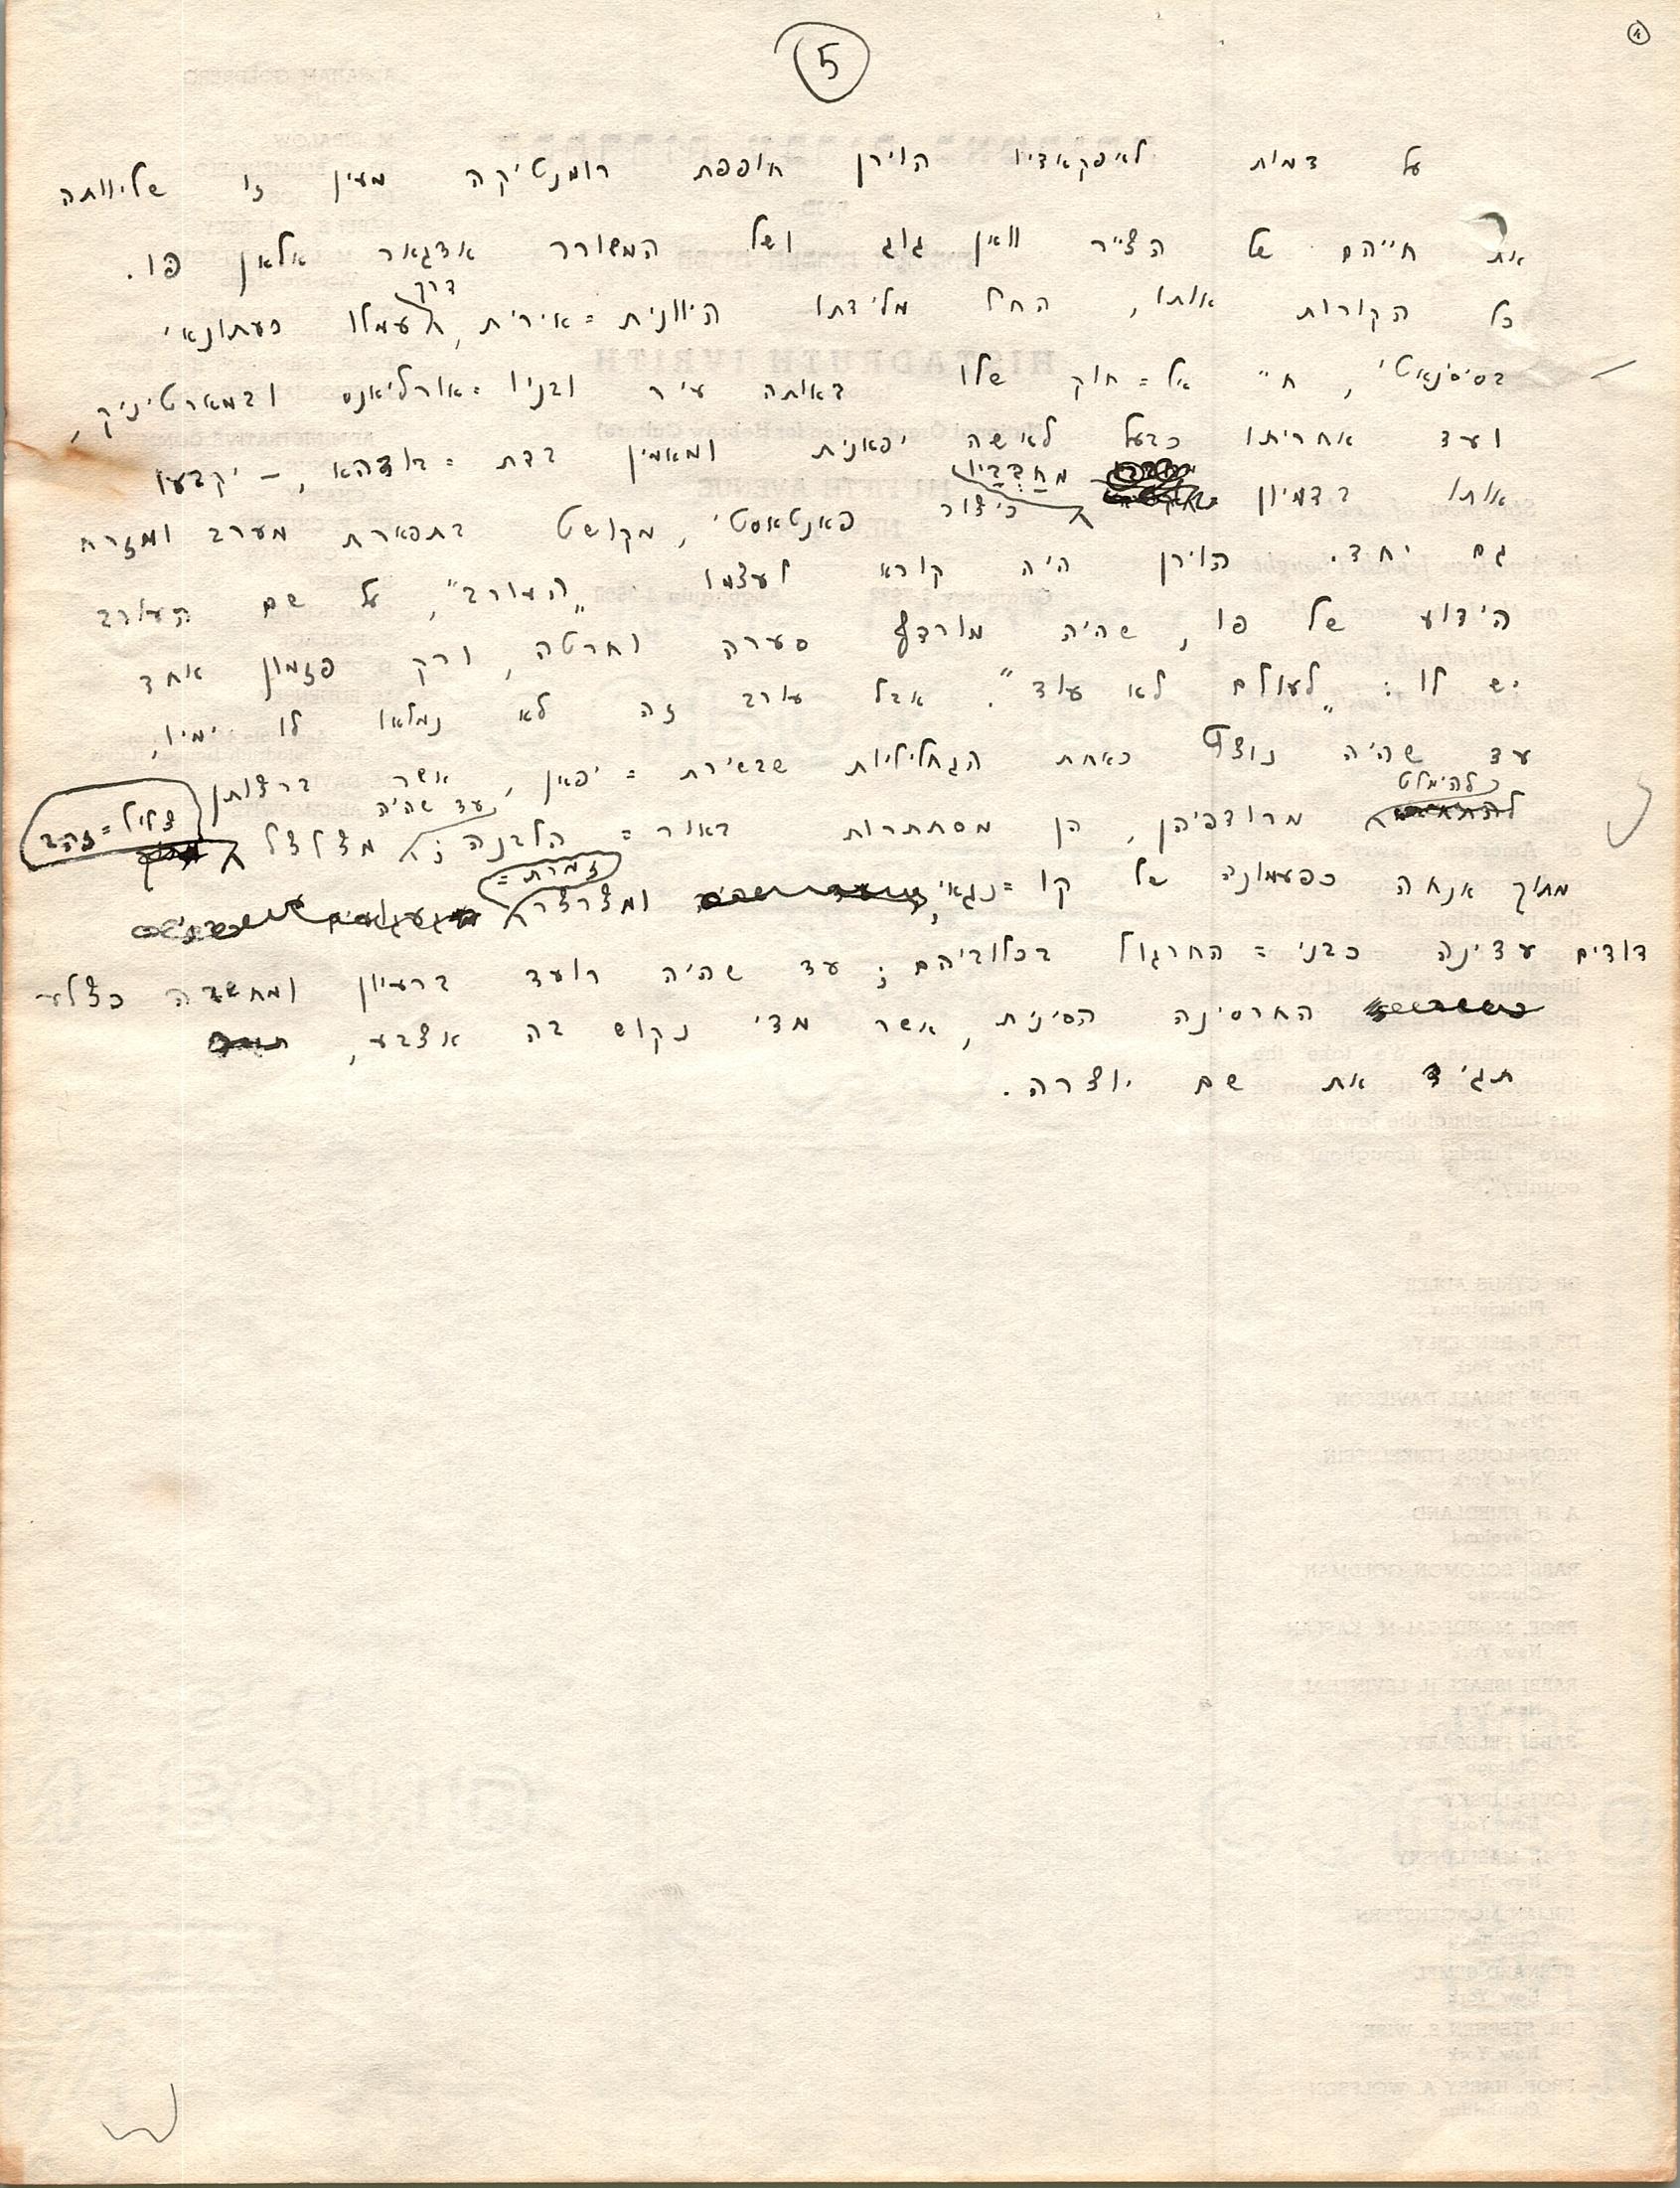 5
על דמות לאיפקאדיו הוירן חופפת רומנטיקה מעין זו שליוותה
את חייהם של הצייר וואן גוג ושל המשורר אדגאר אלאן פו.
כל הקורות אותו, החל מלידתו היוונית=אירית, דרך עמלו כעתונאי
בסינסינאטי, חיי אל=חוק שלו באותה עיר ובניו=אורליאנס ובמארטיניק,
ועד אחריתו כבעל לאשה יפאנית ומאמין בדת=בודהא, – יקבעו
אותו בדמיון מְחַבְּבָיו כיצור פאנטאסטי, מקושט בתפארת מערב ומזרח
גם יחד. הוירן היה קורא לעצמו „העורב", על שם העורב
הידוע של פו, שהיה מורדף סערה וחרטה, ורק פזמון אחד
יש לו: „לעולם לא עוד". אבל עורב זה לא נמלאו לו ימיו,
עד שהיה נוצץ כאחת הגחליליות שבשירת=יפאן, אשר ברצותן
להימלט מרודפיהן, הן מסתתרות באור=הלבנה; עד שהיה מצלצל צליל=זהב
מתוך אנחה כפעמונה של קו=נגאי, ומצרצר זמרת=
דודים עדינה כבני=החרגול בכלוביהם; עד שהיה רועד ברעיון ומחשבה כצלע
החרסינה הסינית, אשר מדי נקוש בה אצבע,
תגיד את שם יוצרה.